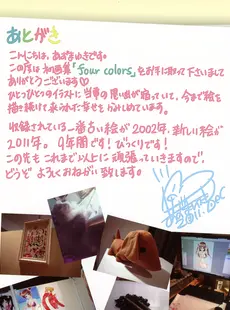 あとがき
こんにちは、あずまゆきです。
この度は初画集「four colors」をお手に取って下さいまして
ありがとうございます♡
ひとつひとつのイラストに当時の思い出が宿っていて、今まで絵を
描き続けて来られた幸せをかみしめています。
収録されている一番古い絵が2002年、新しい絵が
2011年。9年間です！びっくりです！
この先もこれまで以上に頑張っていきますので
どうぞ よろしくおねがい致します。
2011.DEC